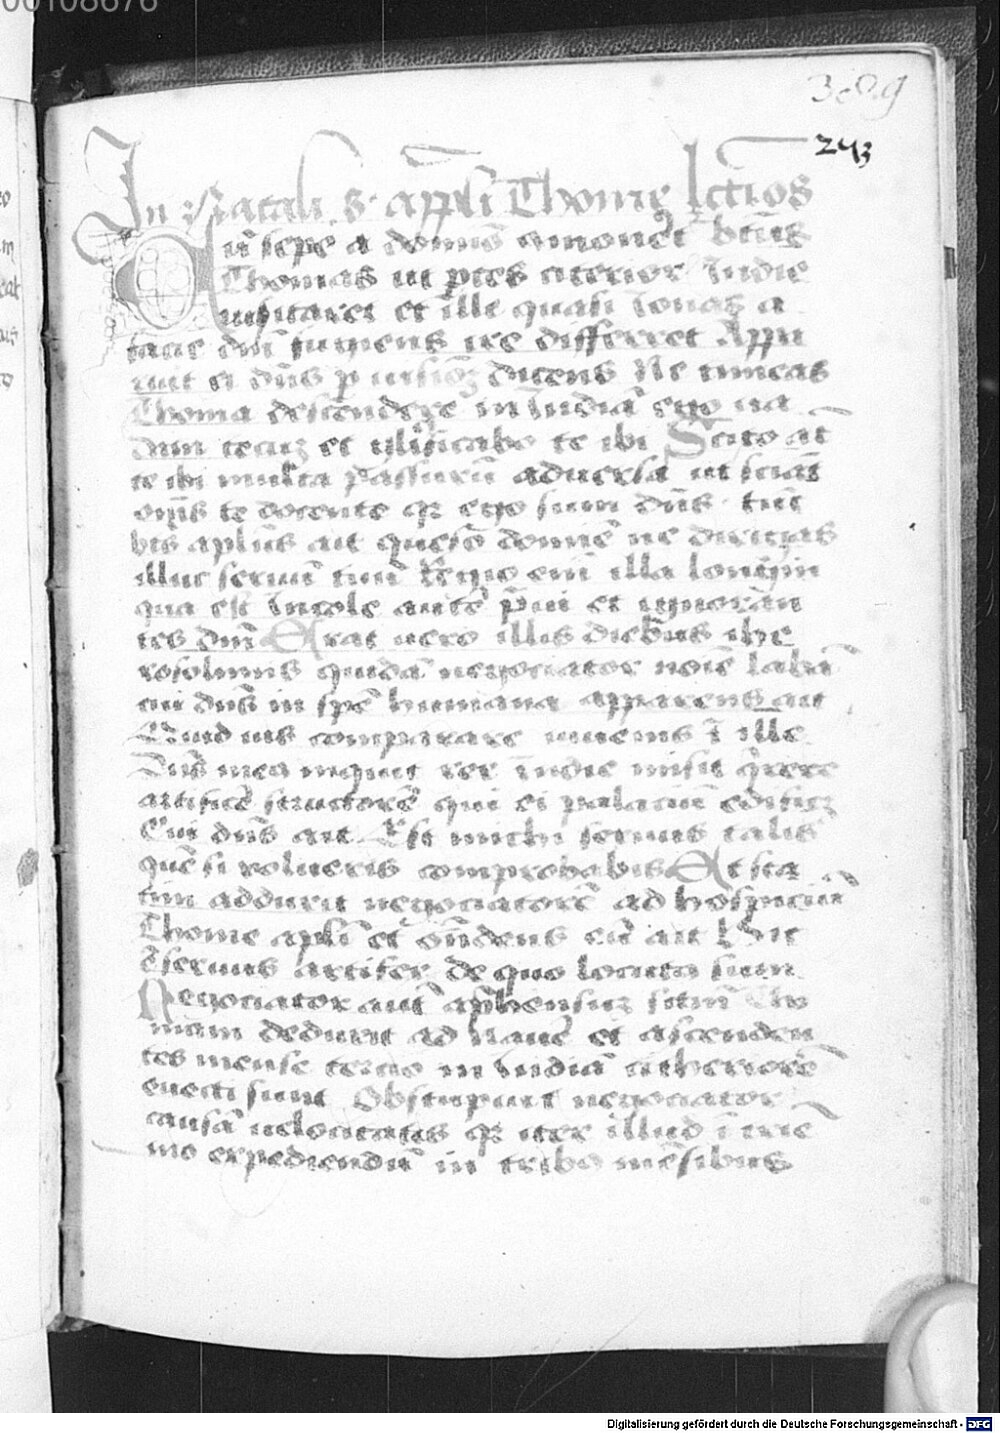 00108676
389
243
In Natali S. appli Thome lctios
Cū sepe a domino amonet' btūs
Thomas ut ptes citerior' Indie
uisitaret et ille quasi ionas a
facie dni fugiens ire differret Appa
ruit ei dns p uisionē dicens Ne timeas
Thoma descendere in Indiā ego ua
dam tecū et glificabo te ibi Scito at
te ibi multa passurū aduersa ut sciāt
oms te docente q ego sum dns tūc
btūs aplus ait queso domine ne dirigas
illuc seruū tuū Regio eni illa longin
qua est Incole autē praui et ignoran
tes dnm Erat uero illis diebus ihe
rosolimis quidā negociator noīe labā
cui dns in spē humana apparens ait
Quid uis comparare iuuenis ī ille
Dns meus inquit rex indie misit qrere
artificē structorē qui ei palaciū edificz
Cui dns ait Est michi seruus talis
quē si volueris comprobabis Et sta
tim adduxit negociatorē ad hospiciū
Thome apli et ondens eū ait Hic
ē seruus artifex de quo locutus sum
Negociator aut apphensuz scm Tho
mam deduxit ad nauē et ascenden
tes mense tercio in Indiā citheriorē
euecti sunt Obstupuit negociator
causā uelocitatis q iter illud ī trie
nio expediendū in tribus mēsibus
Digitalisierung gefördert durch die Deutsche Forschungsgemeinschaft - DFG